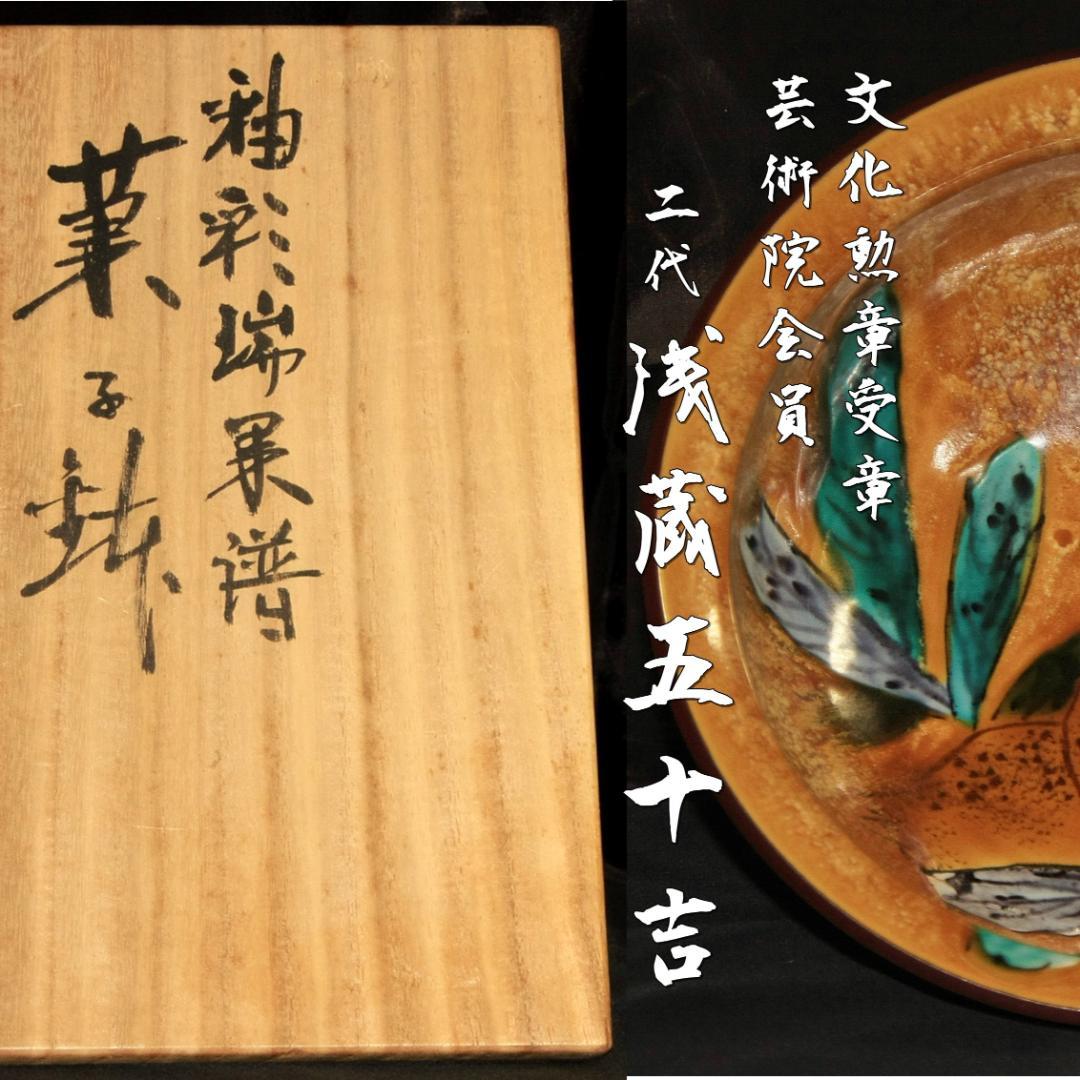 釉彩瑞果譜
菓子鉢
文化勲章受章
芸術院会員
二代 浅蔵五十吉